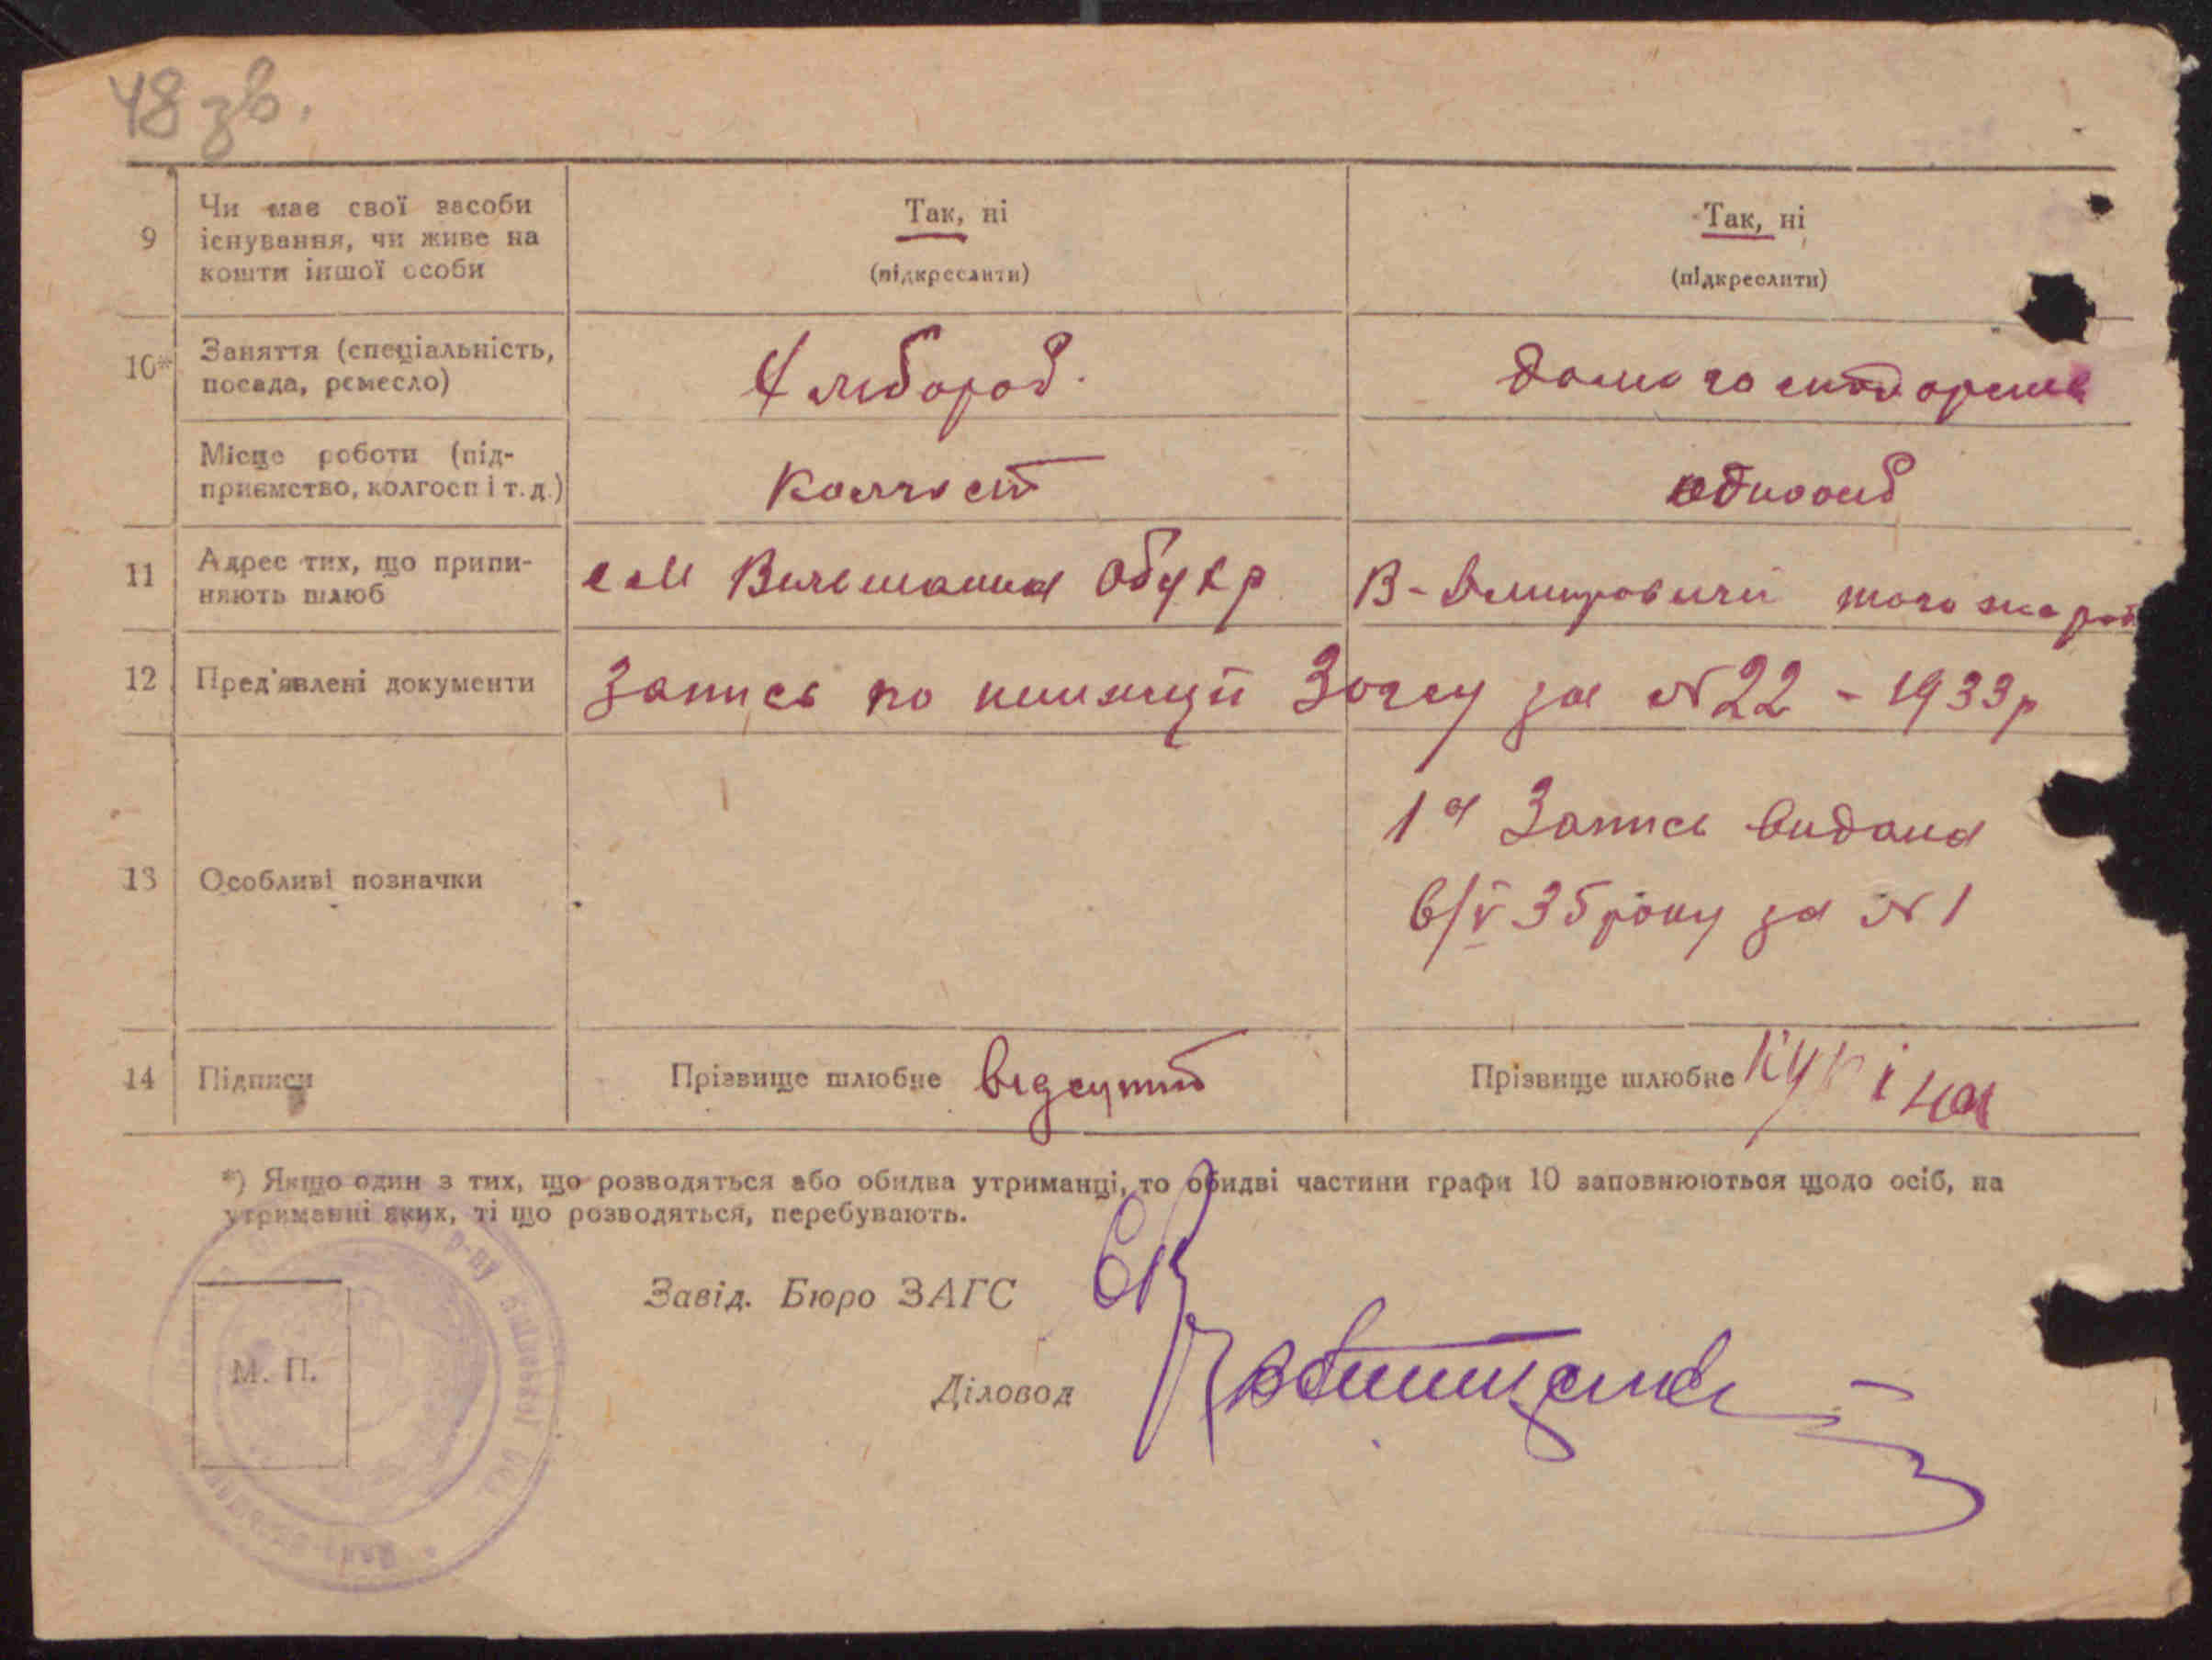 48 зв.
9 Чи має свої засоби існування, чи живе на кошти іншої особи
Так, ні
(підкреслити)
Так, ні
(підкреслити)
10*
Заняття (спеціальність,
посада, ремесло)
Хлібороб.
домогосподарка
Місце роботи (під-
приємство, колгосп і т. д.)
Колгосп
одноосіб
11 Адрес тих, що припи-
няють шлюб
с. Вільшанка Обух р
В-Дмитровичі того же рай
12 Пред'явлені документи
Запись по книжці Загсу за №22 - 1933р
13 Особливі позначки
1а Запись видана
6/V 35 року за №1
14 Підписи
Прізвище шлюбне відсутній
Прізвище шлюбне
*) Якщо один з тих, що розводяться або обидва утриманці, то обидві частини графи 10 заповнюються щодо осіб, на
утриманні яких, ті що розводяться, перебувають.
Завід. Бюро ЗАГС
Діловод
М. П.
р-ну Київської